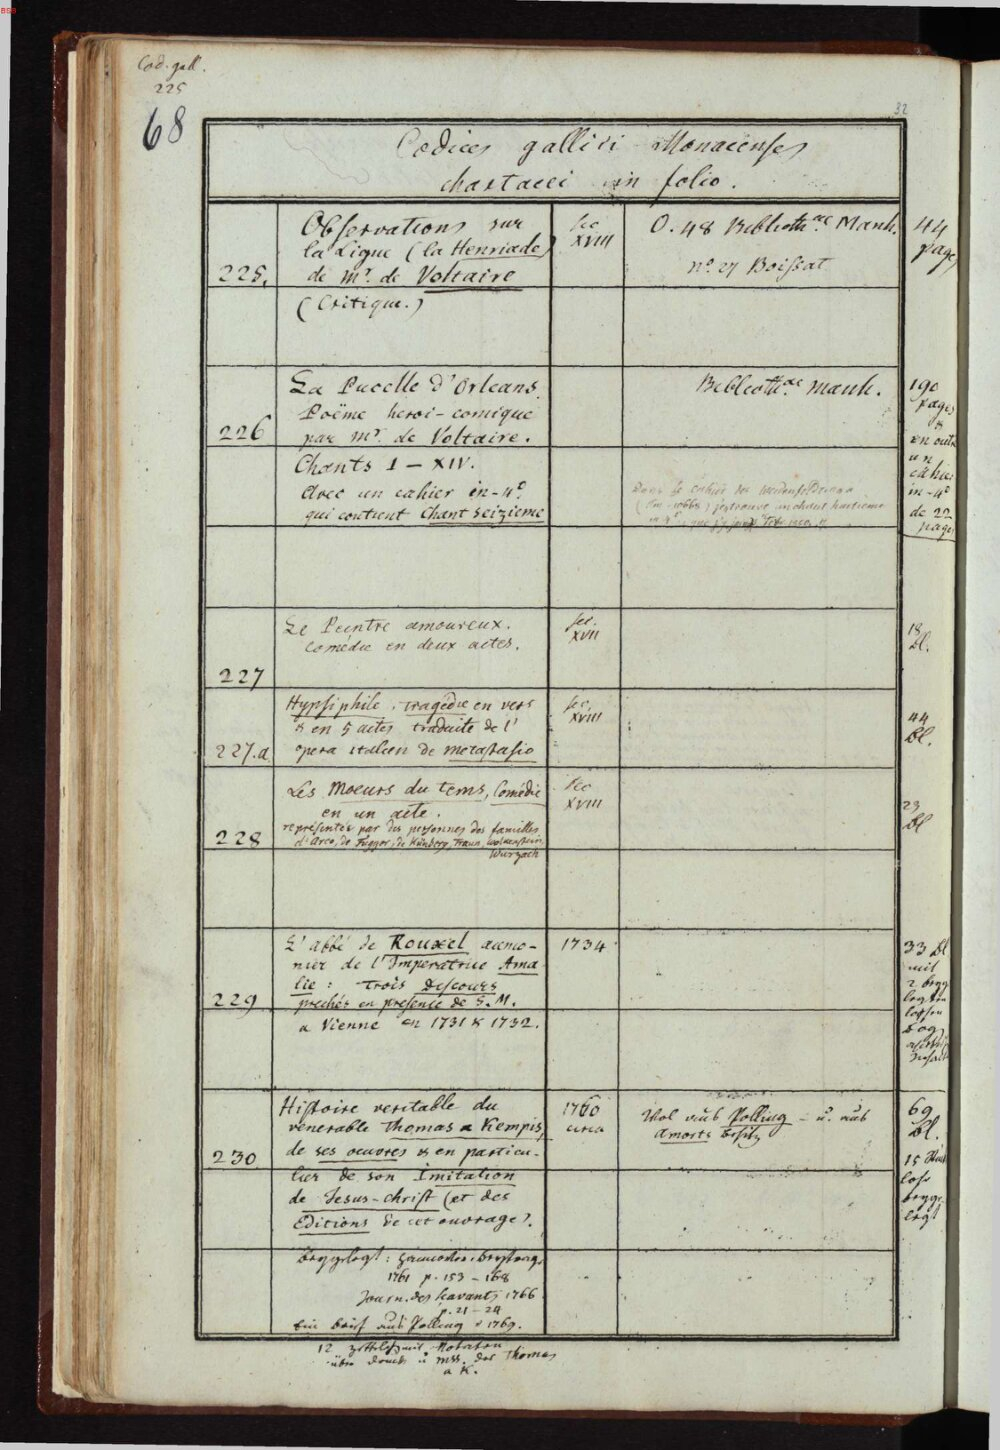 BSB
Cod. gall.
225
68
32
Codices gallici Monacenses
chartacei in folio.
Observations sur
la Ligue (la Henriade)
225. de Mr. de Voltaire
(Critique.)
sec
XVIII
O. 48 Biblioth.ae Manh.
no. 27 Boissat
44
pages
La Pucelle d'Orleans.
Poëme heroi-comique
226 par Mr. de Voltaire.
Chants I – XIV.
avec un cahier in-4o.
qui contient Chant seizieme
Biblioth.ae manh.
190
pages
&
en outre
un
cahier
in-4o
de 22
pages
Le Peintre amoureux.
Comédie en deux actes.
227
sec.
XVII
18
Bl.
Hypsiphile, tragédie en vers
& en 5 actes traduite de l'
227.a opera italien de metastasio
sec.
XVIII
44
Bl.
Les Moeurs du tems, Comédie
en un acte.
representée par des personnes des familles
228 d'Arco, de Fugger, de Künberg, Traun, Wolkenstein,
Wurzach
sec
XVIII
23
Bl
L'abbé de Rouxel aumo-
nier de l'Imperatrice Ama
lie: trois Discours
229 prechés en presence de S. M.
a Vienne en 1731 & 1732.
1734
33 Bl
mit
2
Histoire veritable du
venerable Thomas a Kempis,
230 de ses oeuvres & en particu-
lier de son Imitation
de Jesus-christ (et des
Editions de cet ouvrage).
1760
circa
Wol aus Polling – u. aus
Amorts Besitz
69
Bl.
15
beygelegt:
1761 p. 153 – 168
Journ. des Scavants 1766
p. 21 – 24
Ein Brief aus Polling v 1769.
12 Notaten
über Druck u mss. des Thomas
a K.